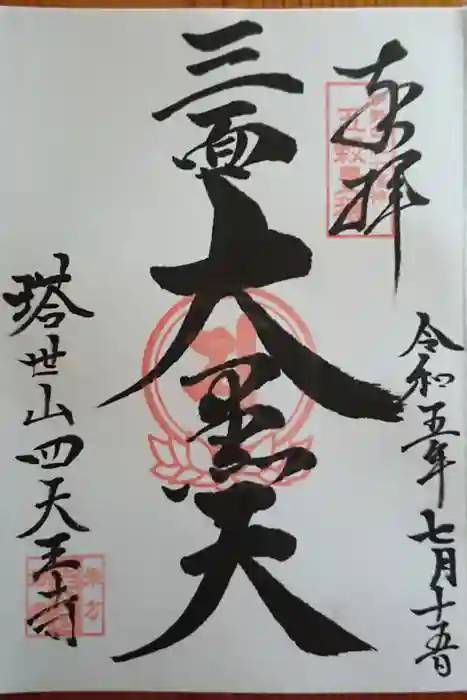 奉拝
令和五年七月十五日
三面大黒天
塔世山四天王寺